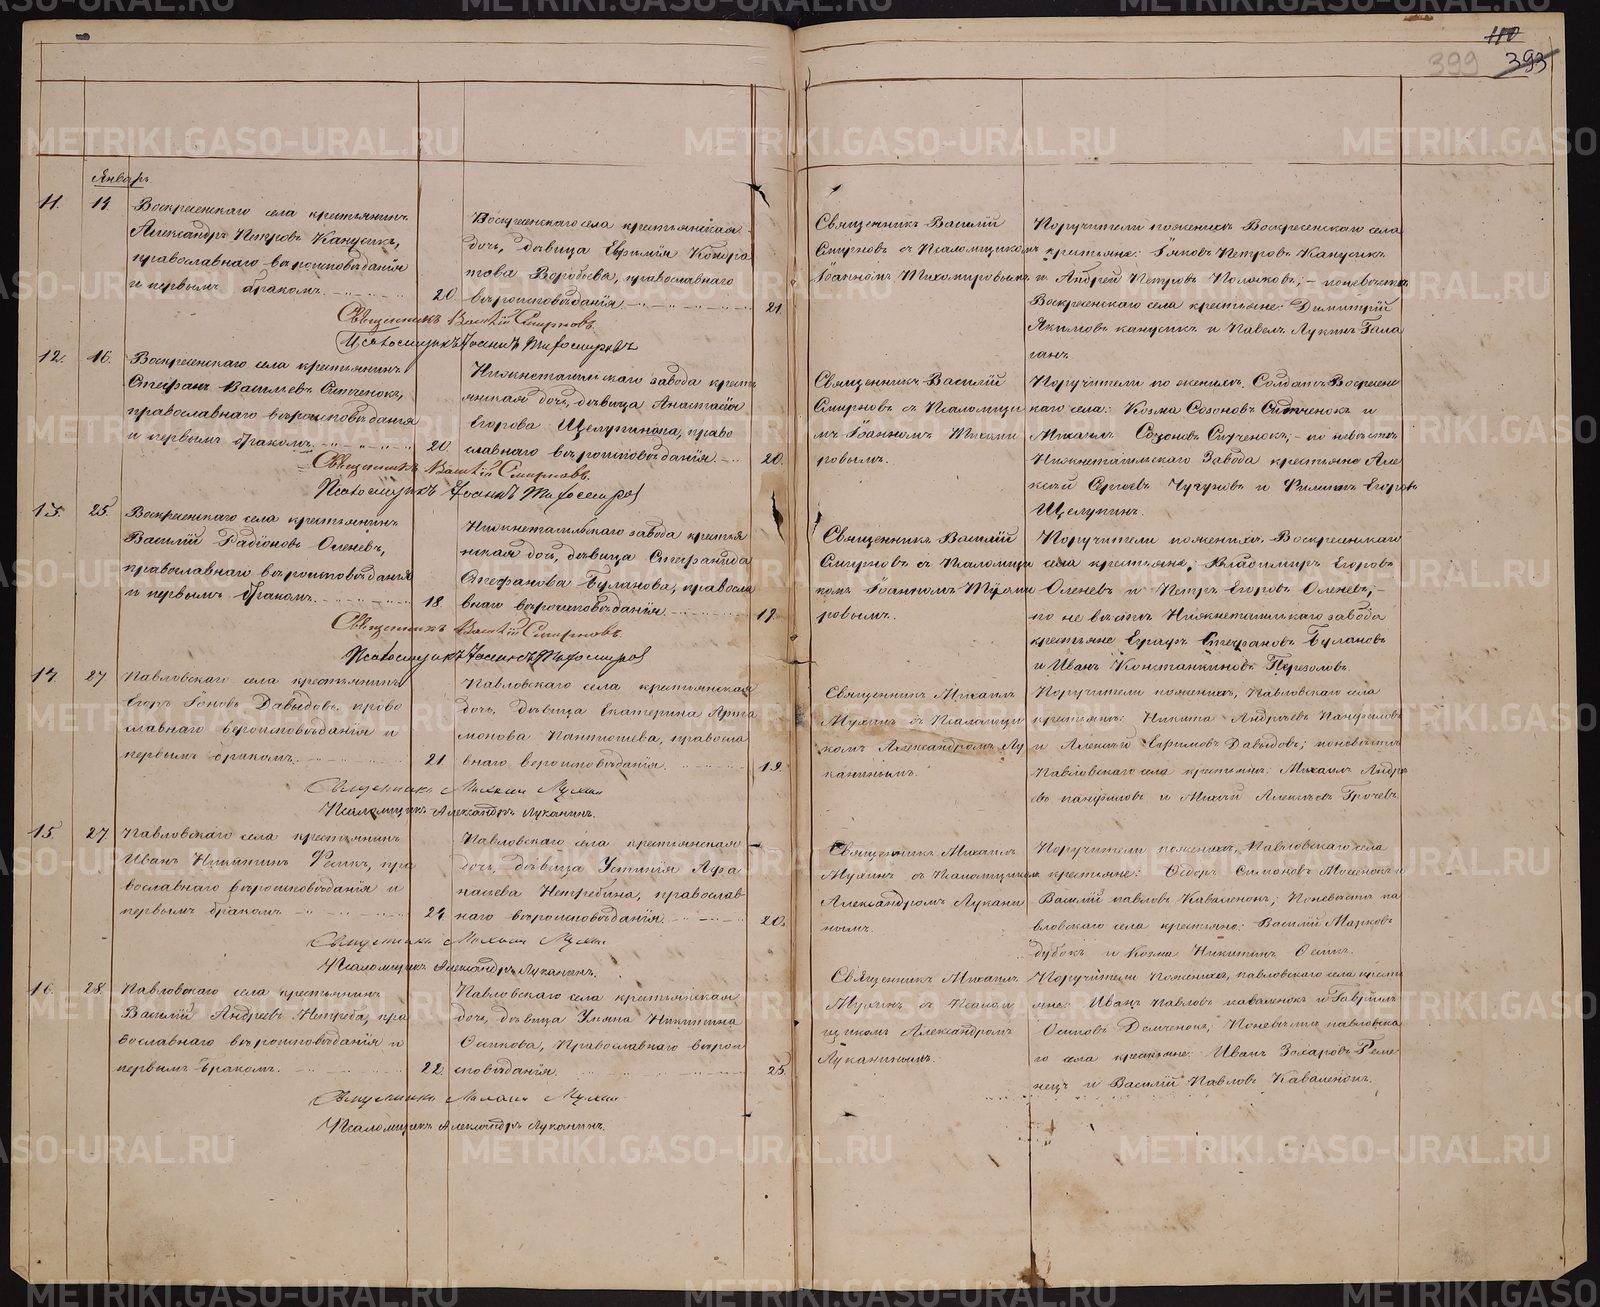 110
399 393
Январь
11. 14. Воскресенскаго села крестьянинъ
Александръ Петровъ Канусикъ,
православнаго вѣроисповѣданія
и первымъ бракомъ. 20.
Воскресенскаго села крестьянская
дочь, дѣвица Евфимія Кондра
това Воробьева, православнаго
вѣроисповѣданія 21.
Священникъ Василій Смирновъ.
Псаломщикъ Іоаннъ Тихомировъ
Священникъ Василій
Смирновъ съ Псаломщикомъ
Іоанномъ Тихомировымъ
Поручители по женихѣ Воскресенскаго села
крестьяне: Яковъ Петровъ Канусикъ
и Андрей Петровъ Поляковъ; - по невѣстѣ
Воскресенскаго села крестьяне: Димитрій
Якимовъ канусикъ и Павелъ Лукинъ Гала
ганъ.
12. 16. Воскресенскаго села крестьянинъ
Стефанъ Васильевъ Ситченокъ,
православнаго вѣроисповѣданія
и первымъ бракомъ. 20.
Нижнетагильскаго завода кресть
янская дочь, дѣвица Анастасія
Егорова Щелупинова, право
славнаго вѣроисповѣданія 20.
Священникъ Василій Смирновъ.
Псаломщикъ Іоаннъ Тихомировъ
Священникъ Василій
Смирновъ съ Псаломщико
мъ Іоанномъ Тихоми
ровымъ.
Поручители по женихѣ. Солдатъ Воскресенс
каго села: Козма Созоновъ Ситченокъ и
Михаилъ Созоновъ Ситченокъ; - по невѣстѣ
Нижнетагильскаго Завода крестьяне Але
ксѣй Сергѣевъ Чугуновъ и Филиппъ Егоровъ
Щелупинъ.
13. 25. Воскресенскаго села крестьянинъ
Василій Радіоновъ Оленевъ,
православнаго вѣроисповѣданія
и первымъ бракомъ. 18.
Нижнетагильскаго завода крестья
нская дочь, дѣвица Стефанида
Стефанова Буланова, правосла
внаго вѣроисповѣданія 17.
Священникъ Василій Смирновъ.
Псаломщикъ Іоаннъ Тихомировъ
Священникъ Василій
Смирновъ съ Псаломщи
комъ Іоанномъ Тихоми
ровымъ.
Поручители по женихѣ. Воскресенскаго
села крестьяне: Владимиръ Егоровъ
Оленевъ и Петръ Егоровъ Оленевъ; -
по невѣстѣ Нижнетагильскаго завода
крестьяне Стефановъ Булановъ
и Иванъ Константиновъ Перезоловъ.
14. 27 Павловскаго села крестьянинъ
Егоръ Іоновъ Давыдовъ, право
славнаго вероисповѣданія и
первымъ бракомъ. 21
Павловскаго села крестьянская
дочь, дѣвица Екатерина Арта
монова Пантюшева, правосла
внаго вероисповѣданія. 19.
Священникъ Михаилъ Мухинъ
Псаломщикъ Александръ Луканинъ.
Священникъ Михаилъ
Мухинъ съ Псаломщи
комъ Александромъ Лу
канинымъ.
Поручители по женихѣ, Павловскаго села
крестьяне: Никита Андреевъ Панфиловъ
и Алексѣй Ефимовъ Давыдовъ; по невѣстѣ
Павловскаго села крестьяне: Михаилъ Андре
евъ панфиловъ и Алексѣевъ Грачевъ.
15. 27 Павловскаго села крестьянинъ
Иванъ Никитинъ пра
вославнаго вѣроисповѣданія и
первымъ бракомъ 24.
Павловскаго села крестьянская
дочь, дѣвица Устинія Афа
насьева Нетребина, православ
наго вѣроисповѣданія 20.
Священникъ Михаилъ Мухинъ
Псаломщикъ Александръ Луканинъ.
Священникъ Михаилъ
Мухинъ съ Псаломщикомъ
Александромъ Лукани
нымъ.
Поручители по женихѣ, Павловскаго села
крестьяне: Ѳедоръ Симоновъ Мосенокъ и
Василій павловъ Каваленокъ; По невѣстѣ па
вловскаго села крестьяне: Василій Марковъ
дубокъ и Козма Никитинъ
16. 28. Павловскаго села крестьянинъ
Василій Андреевъ Нетреба, пра
вославнаго вѣроисповѣданія и
первымъ бракомъ. 22.
Павловскаго села крестьянская
дочь, дѣвица Ульяна Никитина
Осипова, Православнаго вѣрои
сповѣданія. 25.
Священникъ Михаилъ Мухинъ
Псаломщикъ Александръ Луканинъ.
Священникъ Михаилъ
Мухинъ съ Псалом
щикомъ Александромъ
Луканинымъ.
Поручители По женихѣ, павловскаго села кресть
яне: Иванъ Павловъ каваленокъ и Гавріилъ
Осиповъ Демченокъ; По невѣстѣ павловска
го села крестьяне: Иванъ Захаровъ Реме
нецъ и Василій Павловъ Каваленокъ.
METRIKI.GASO-URAL.RU